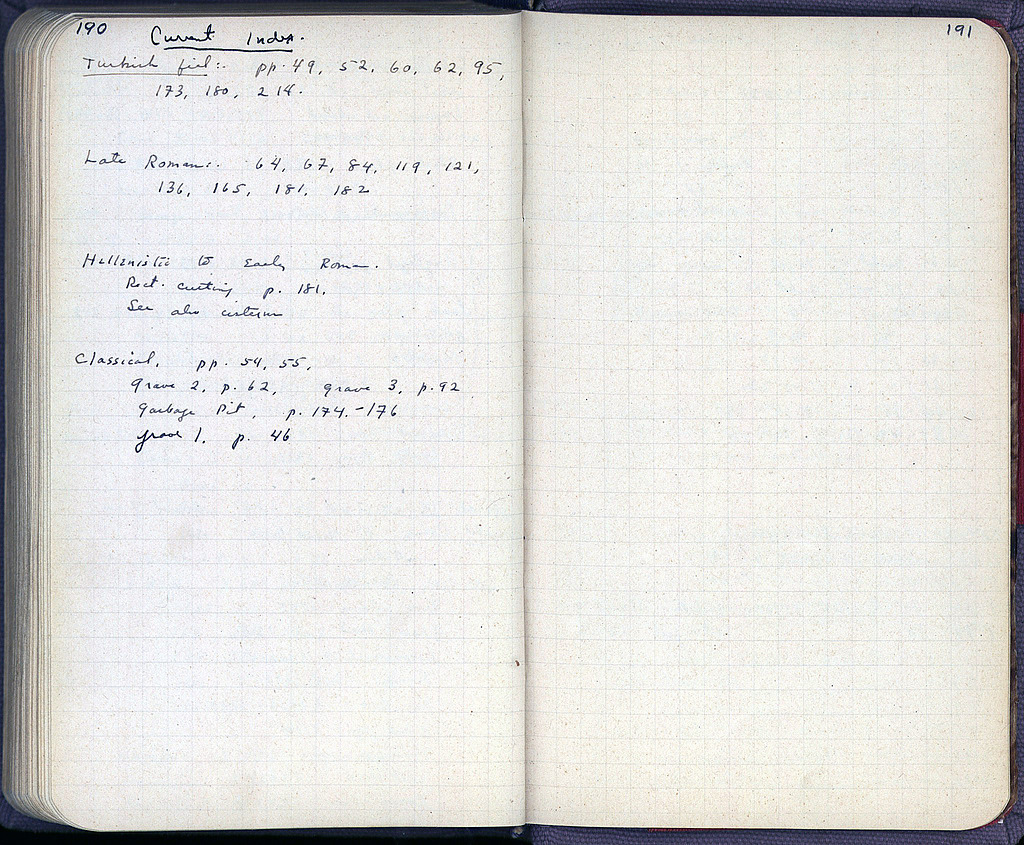 190
Current Index.
Turkish fill:. pp. 49, 52, 60, 62, 95,
173, 180, 214.
Late Roman:. 64, 67, 84, 119, 121,
136, 165, 181, 182
Hellenistic to Early Roman.
Rect. cutting p. 181.
See also cisterns
Classical. pp. 54, 55,
grave 2, p. 62, grave 3, p. 92
Garbage Pit, p. 174.-176
grave 1. p. 46
191